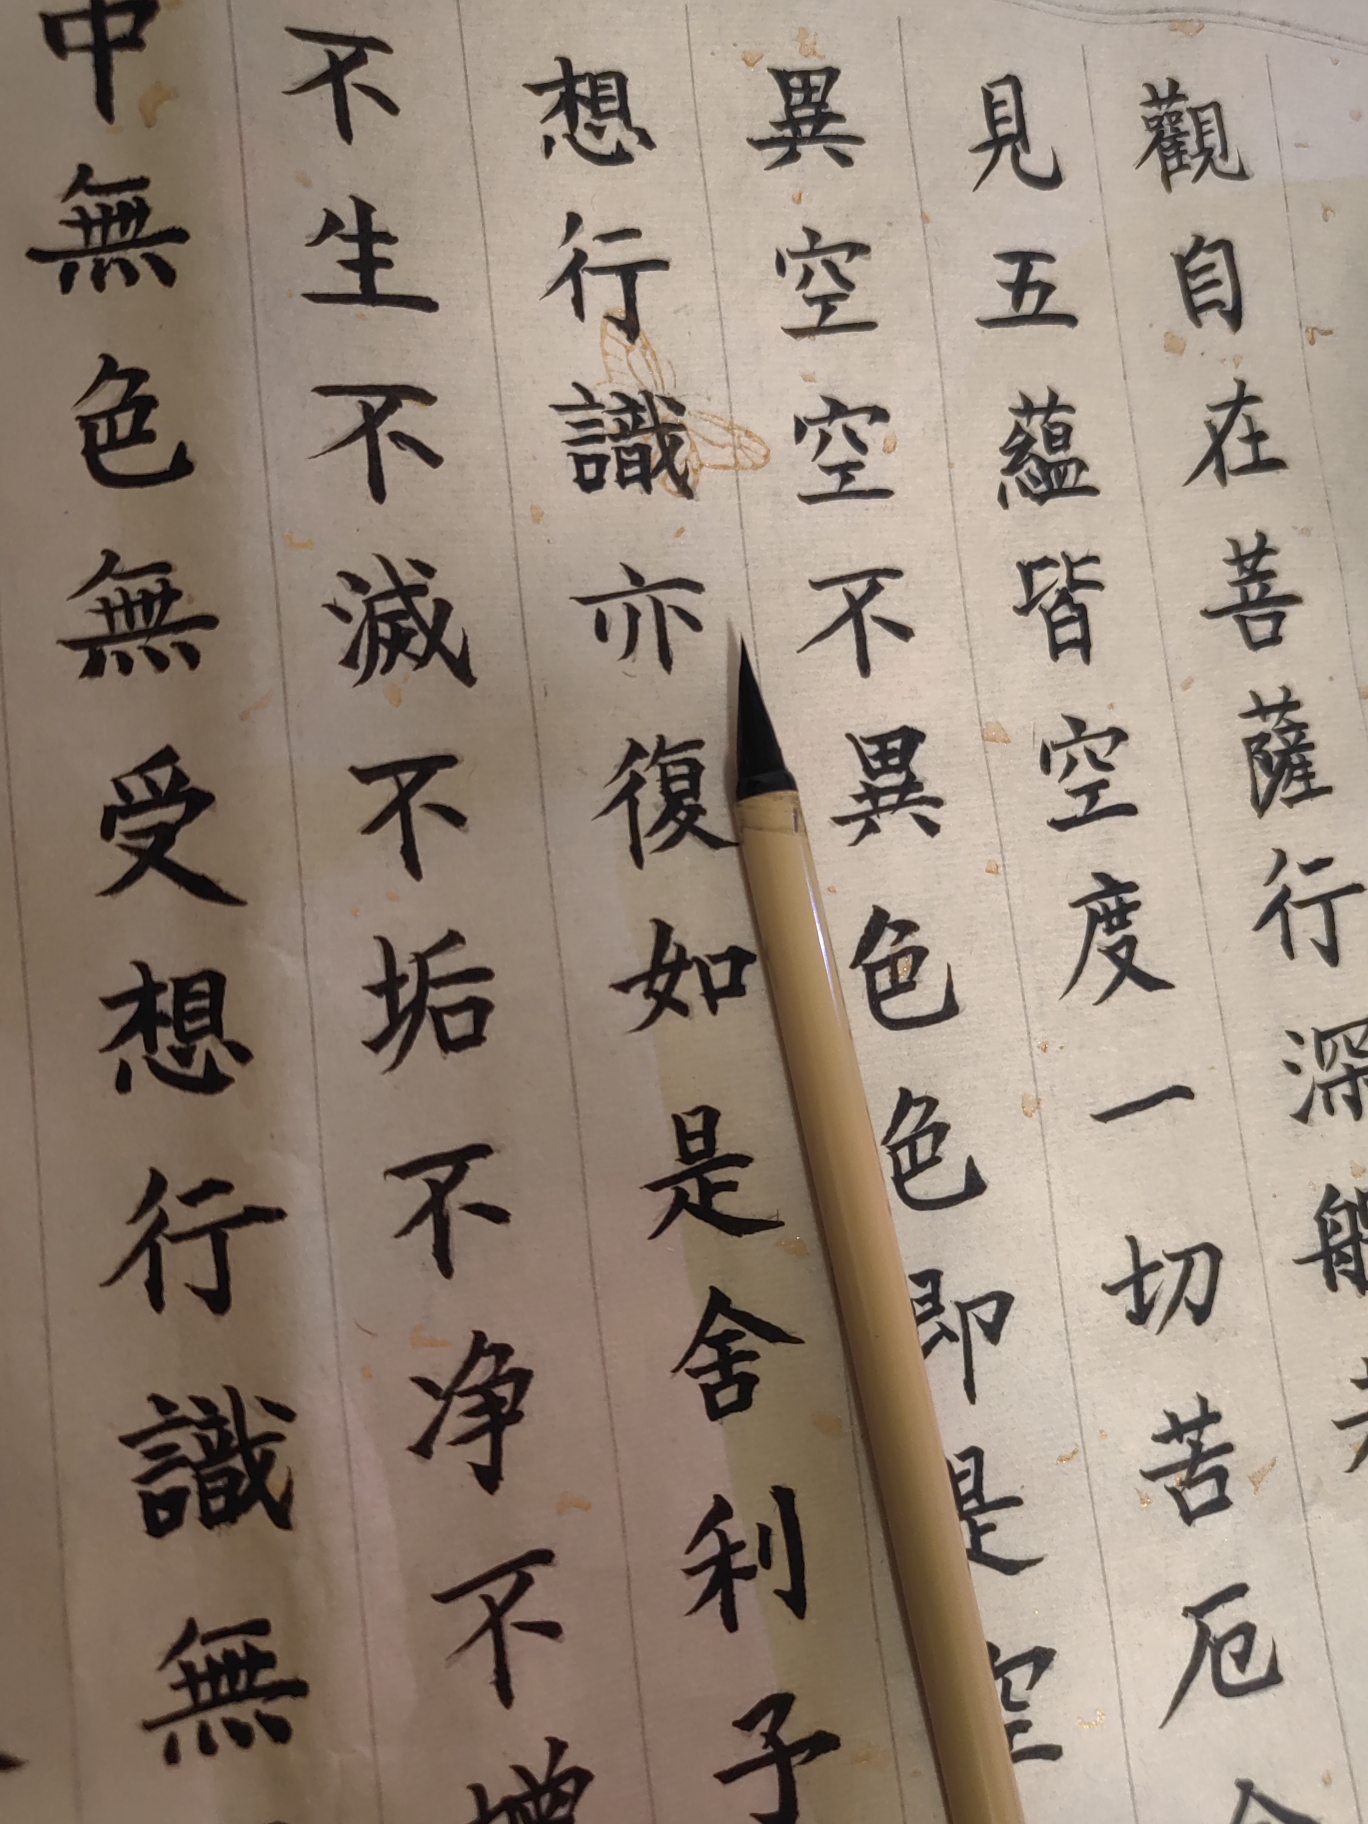 觀自在菩薩行深般
見五蘊皆空度一切苦厄舍
異空空不異色色即是空
想行識亦復如是舍利子
不生不滅不垢不净不增
中無色無受想行識無